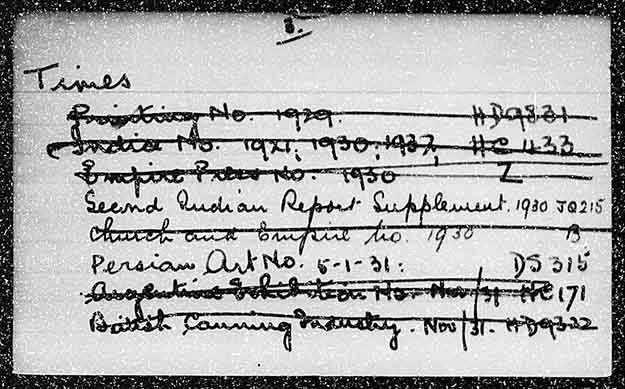 3.
Times
Printing No. 1929. HD9831
India No. 1921, 1930, 1937, HC 433
Empire Press No. 1930 Z
Second Indian Report Supplement. 1930 JQ215
Church and Empire No. 1930 B
Persian Art No. 5-1-31: DS 315
Argentine Exhibition No. Nov/31 HC171
British Canning Industry. Nov/31. HD9322